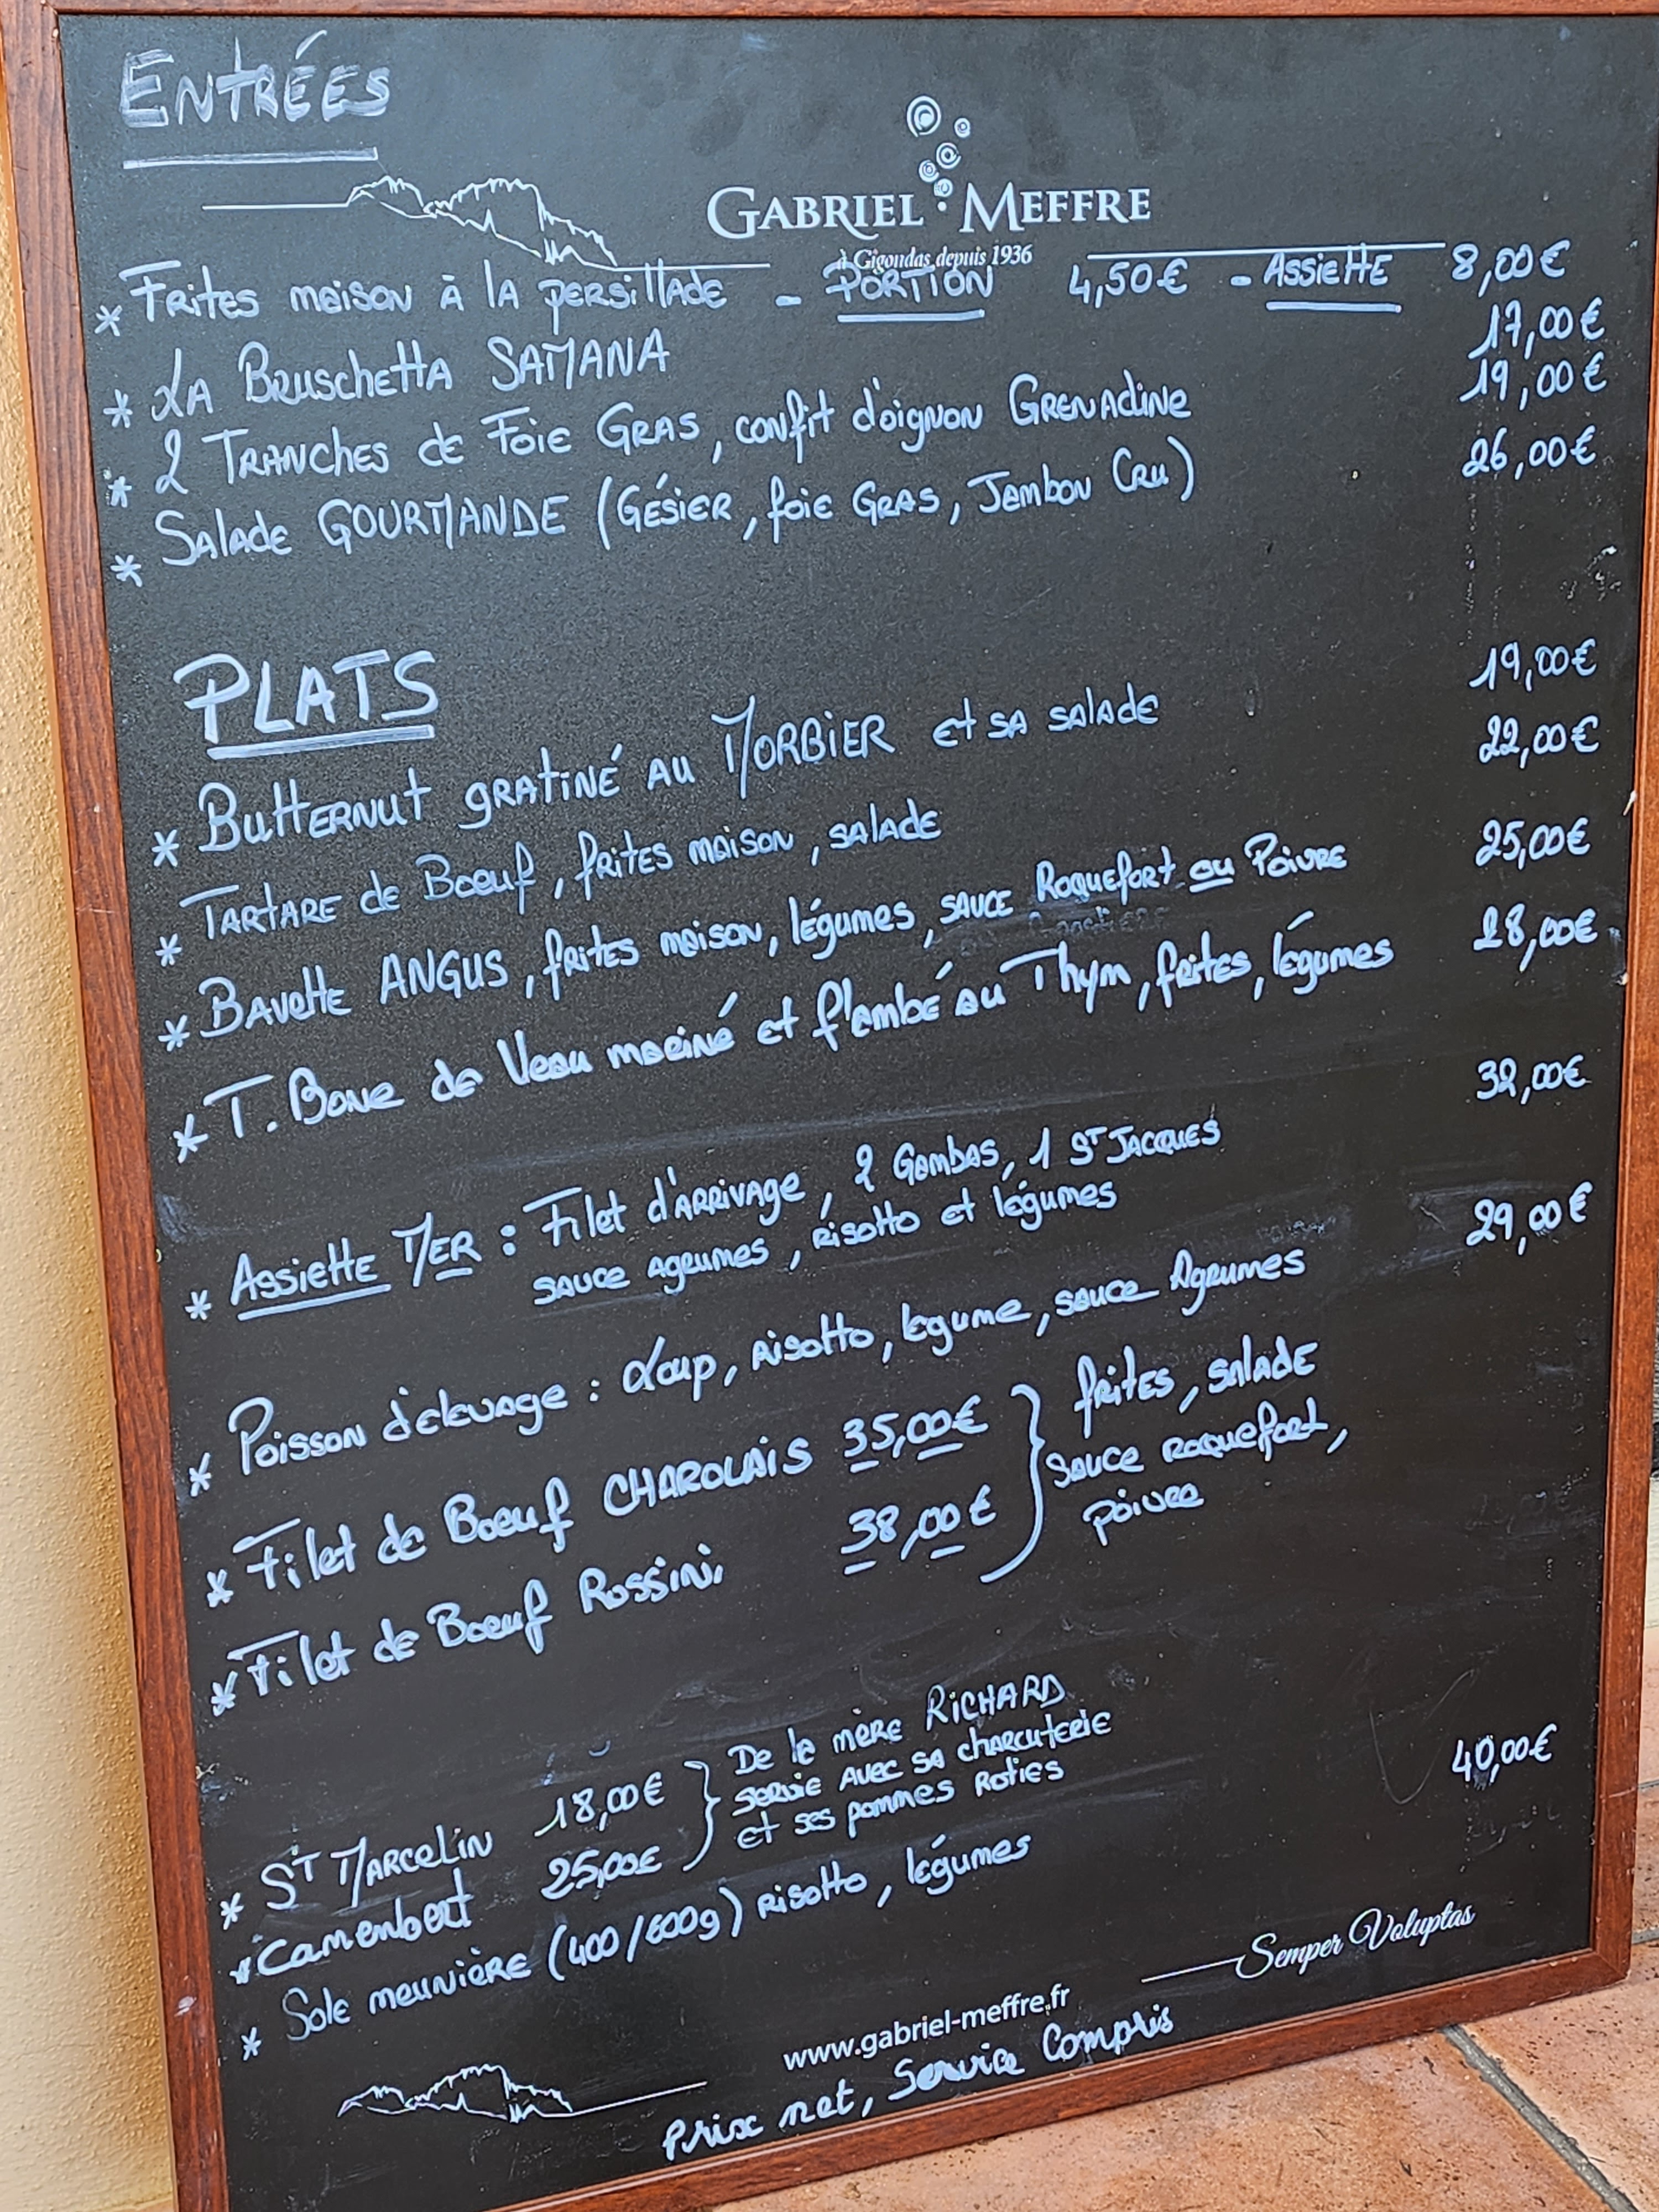 ENTRÉES
GABRIEL MEFFRE
à Gigondas depuis 1936
* Frites maison à la persillade - PORTION 4,50€ - Assiette 8,00€
* La Bruschetta SAMANA 17,00€
* 2 Tranches de Foie Gras, confit d'oignon Grenadine 19,00€
* Salade GOURMANDE (Gésier, foie Gras, Jambon Cru) 26,00€
PLATS
* Butternut gratiné au MORBIER et sa salade 19,00€
* Tartare de Boeuf, frites maison, salade 22,00€
* Bavette ANGUS, frites maison, légumes, sauce Roquefort ou Poivre 25,00€
* T. Bone de Veau mariné et flambé au Thym, frites, légumes 28,00€
* Assiette MER : Filet d'arrivage, 2 Gambas, 1 ST JACQUES 32,00€
sauce agrumes, risotto et légumes
* Poisson d'elevage : Loup, risotto, legume, sauce Agrumes 29,00€
* Filet de Boeuf CHAROLAIS 35,00€ } frites, salade
sauce roquefort,
* Filet de Boeuf Rossini 38,00€ poivre
* ST Marcelin 18,00€ } De la mère RICHARD
servie avec sa charcuterie
* Camembert 25,00€ et ses pommes roties
* Sole meunière (400/600g) risotto, légumes 40,00€
Semper Voluptas
www.gabriel-meffre.fr
Prix net, Service Compris